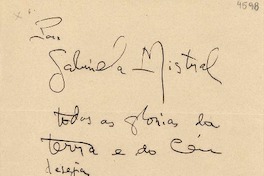 4598
Para
Gabriela Mistral
todas as glorias da
terra e do Céu
deseja